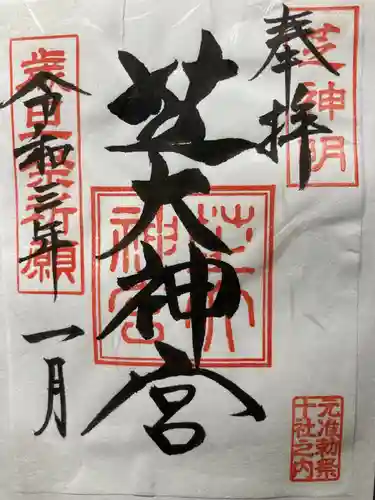 奉拝
芝神明
芝大神宮
芝大神宮
元准勅祭
十社之内
令和三年
一月